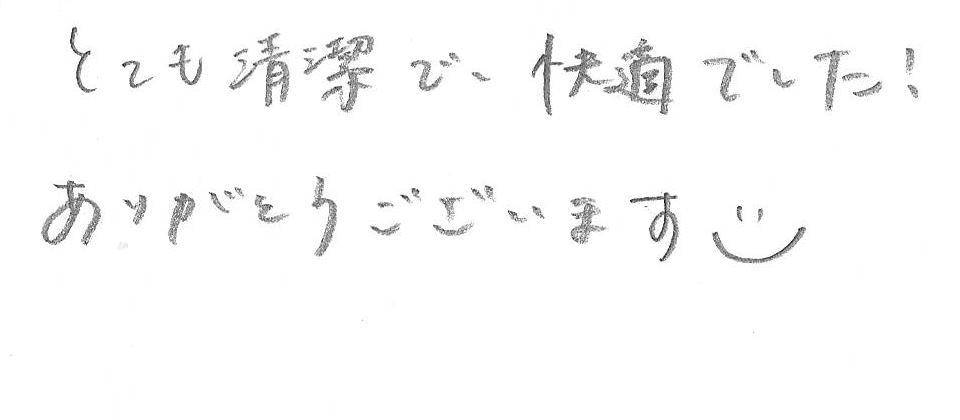 とても清潔で、快適でした!
ありがとうございます